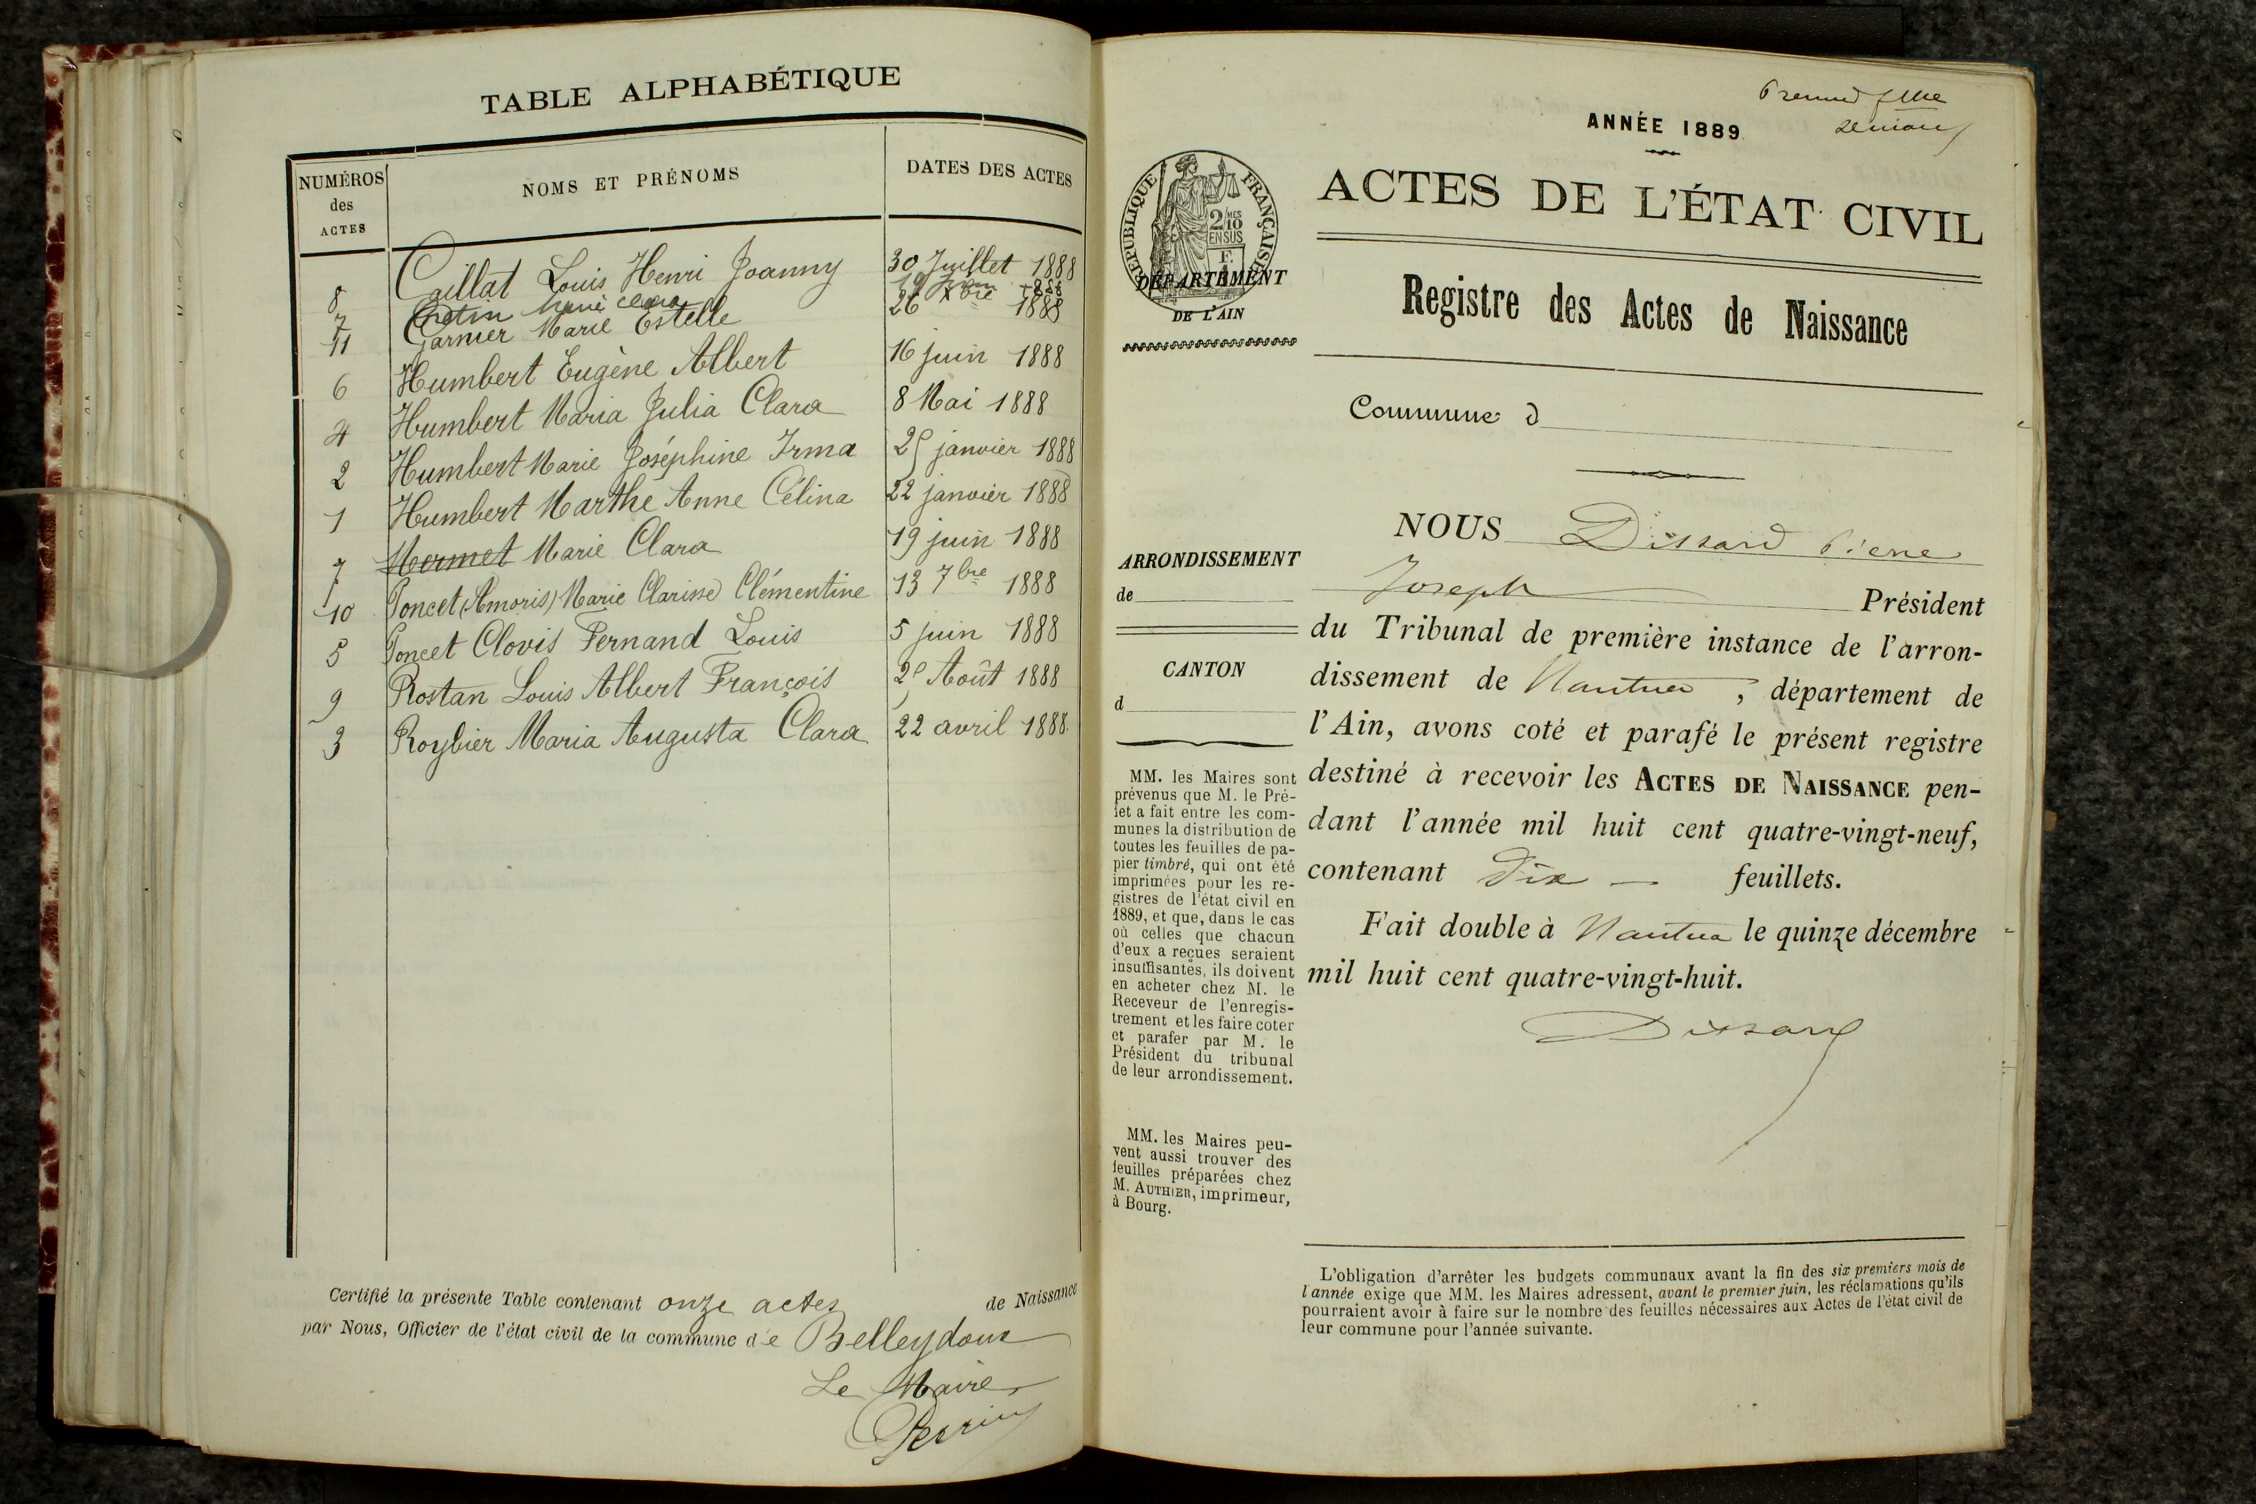 TABLE ALPHABÉTIQUE
NUMÉROS des ACTES
NOMS ET PRÉNOMS
DATES DES ACTES
8 Caillat Louis Henri Joanny 30 Juillet 1888
7 Marie Clara 19 juin 1888
11 Garnier Marie Estelle 26 Xbre 1888
6 Humbert Eugène Albert 16 juin 1888
4 Humbert Maria Julia Clara 8 Mai 1888
2 Humbert Marie Joséphine Irma 25 janvier 1888
1 Humbert Marthe Anne Célina 22 janvier 1888
7 Mermet Marie Clara 19 juin 1888
10 Poncet (Amoris) Marie Clarisse Clémentine 13 7bre 1888
5 Poncet Clovis Fernand Louis 5 juin 1888
9 Rostan Louis Albert François Août 1888
3 Roybier Maria Augusta Clara 22 avril 1888
Certifié la présente Table contenant onze actes de Naissance
par Nous, Officier de l'état civil de la commune de Belleydoux
Le Maire
Perrin
ANNÉE 1889
ACTES DE L'ÉTAT CIVIL
RÉPUBLIQUE FRANÇAISE
2/10MES
EN SUS
DÉPARTEMENT
DE L'AIN
Registre des Actes de Naissance
Commune d
ARRONDISSEMENT
de
CANTON
d
MM. les Maires sont
prévenus que M. le Pré-
fet a fait entre les com-
munes la distribution de
toutes les feuilles de pa-
pier timbré, qui ont été
imprimées pour les re-
gistres de l'état civil en
1889, et que, dans le cas
où celles que chacun
d'eux a reçues seraient
insuffisantes, ils doivent
en acheter chez M. le
Receveur de l'enregis-
trement et les faire coter
et parafer par M. le
Président du tribunal
de leur arrondissement.
MM. les Maires peu-
vent aussi trouver des
feuilles préparées chez
M. AUTHIER, imprimeur,
à Bourg.
NOUS Dissard Pierre
Joseph Président
du Tribunal de première instance de l'arron-
dissement de Nantua, département de
l'Ain, avons coté et parafé le présent registre
destiné à recevoir les ACTES DE NAISSANCE pen-
dant l'année mil huit cent quatre-vingt-neuf,
contenant dix feuillets.
Fait double à Nantua le quinze décembre
mil huit cent quatre-vingt-huit.
Dissard
L'obligation d'arrêter les budgets communaux avant la fin des six premiers mois de
l'année exige que MM. les Maires adressent, avant le premier juin, les réclamations qu'ils
pourraient avoir à faire sur le nombre des feuilles nécessaires aux Actes de l'état civil de
leur commune pour l'année suivante.